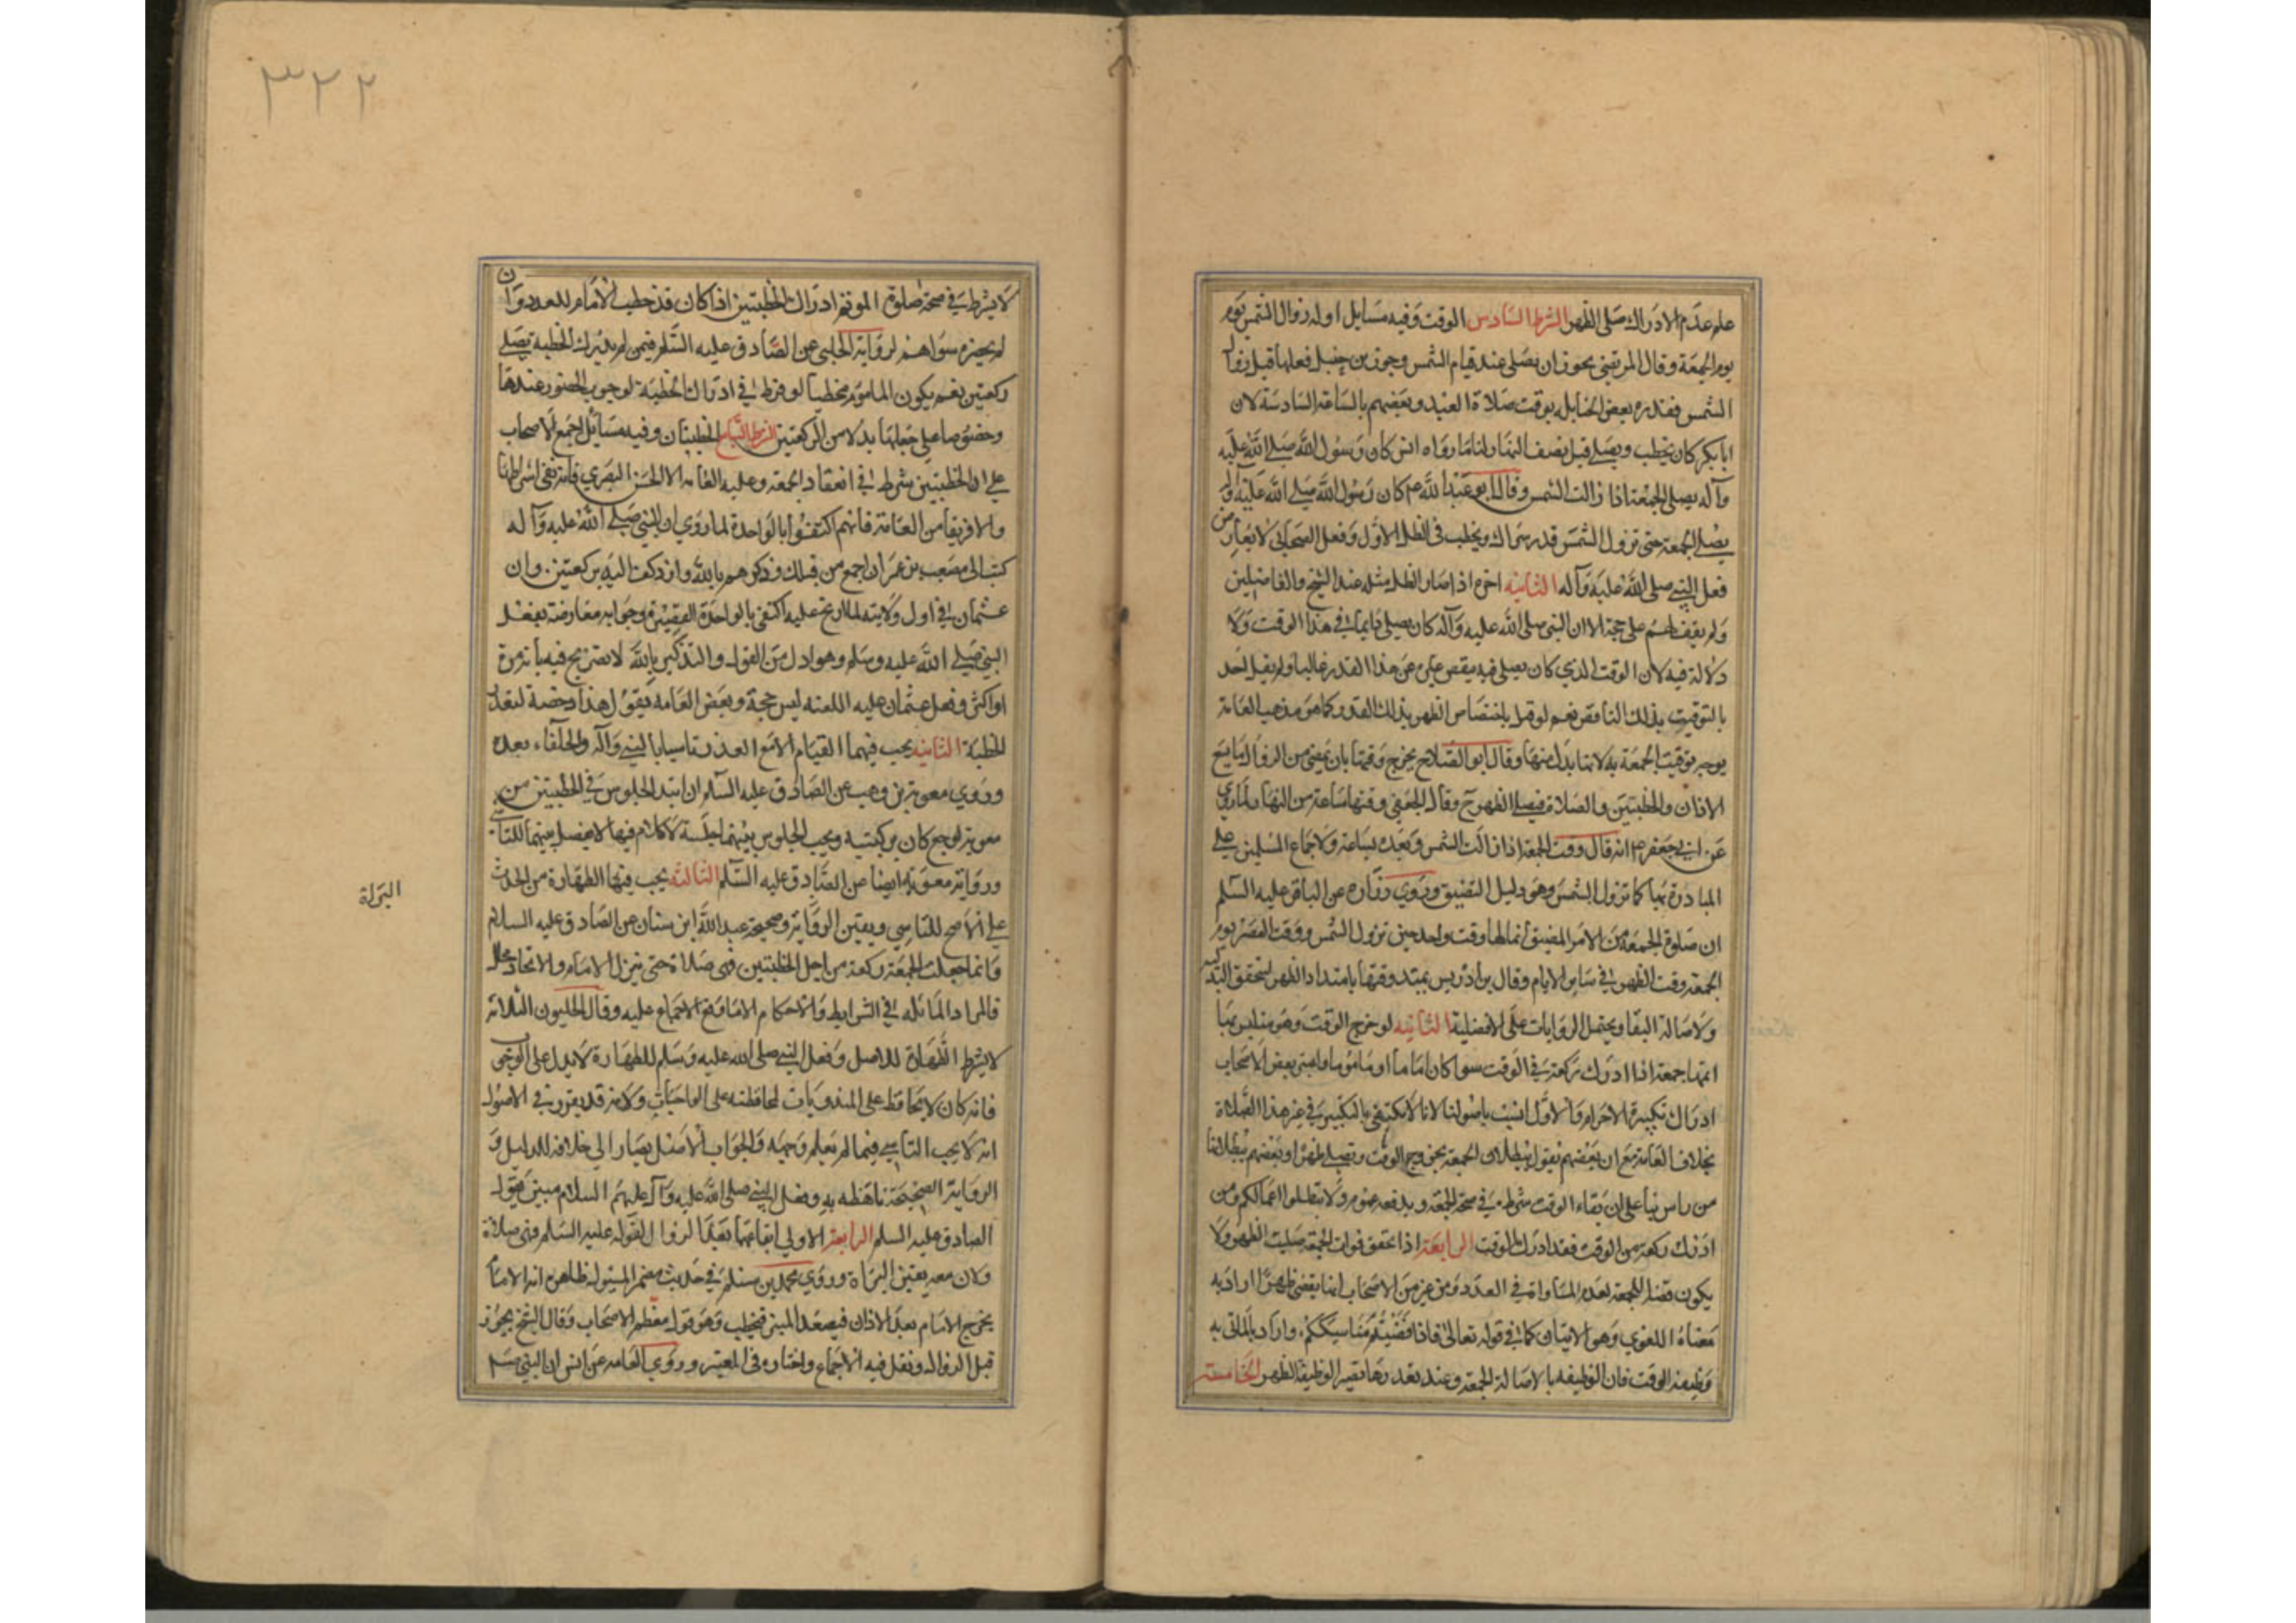 علم عدم الادراك صلى الظهر الشرط السادس الوقت وفيه مسايل اوله زوال الشمس يوم
يوم الجمعة وقال المرتضى يجوز ان يصلى عند قيام الشمس وجوز بن حنبل فعلها قبل زوال
الشمس فقدره بعض الحنابلة بوقت صلاة العيد وبعضهم بالساعة السادسة لان
ابابكر كان يخطب ويصلي قبل نصف النهار لنا ما رواه انس كان رسول الله صلى الله عليه
وآله يصلى الجمعة اذا زالت الشمس وقال ابو عبد الله ع م كان رسول الله صلى الله عليه وآله
يصلى الجمعة حتى تزول الشمس قدر شراك ويخطب في الظل الاول وفعل الصحابى لا يعارض
فعل النبي صلى الله عليه وآله الثانية اخره اذا صار الظل مثله عند الشيخ والفاضلين
ولم يقف لهم على حجة الا ان النبي صلى الله عليه وآله كان يصلى دايما في هذا الوقت ولا
دلالة فيه لان الوقت الذي كان يصلى فيه ينقص عن هذا القدر غالبا ولم يقل احد
بالتوقيت بذلك الناقص نعم لو قيل باختصاص الظهر بذلك القدر كما هو مذهب العامة
يوجب توقيت الجمعة به لانها بدل منها وقال ابو الصلاح يخرج وقتها بان يمضي من الزوال ما يسع
الاذان والخطبتين والصلاة فيصلي الظهر ح وقال الجعفي وقتها ساعة من النهار لما روي
عن ابي جعفر ع م انه قال وقت الجمعة اذا زالت الشمس وبعده بساعة ولاجماع المسلمين على
المبادرة بها كما تزول الشمس وهو دليل التضييق وروي زراره عن الباقر عليه السلم
ان صلوة الجمعة من الامر المضيق انما لها وقت واحد حين تزول الشمس ووقت العصر يوم
الجمعة وقت الظهر في ساير الايام وقال بن ادريس يمتد وقتها بامتداد الظهر لتحقق البدلية
ولاصالة البقا ويحتمل الروايات على الافضلية الثانيه لو خرج الوقت وهو متلبس بها
اتمها جمعة اذا ادرك ركعة في الوقت سوا كان اماما او ماموما واعتبر بعض الاصحاب
ادراك تكبيرة الاحرام والاول انسب باصولنا لانا لا نكتفى بالتكبير في غير هذا الصلاة
بخلاف العامة مع ان بعضهم يقول ببطلان الجمعة بخروج الوقت وتصلى ظهرا وبعضهم ببطلانها
من راس بنا على ان بقاء الوقت شرط في صحة الجمعة ويدفعه عموم ولا تبطلوا اعمالكم ومن
ادرك ركعة من الوقت فقد ادرك الوقت الرابعة اذا تحقق فوات الجمعة صليت الظهر ولا
يكون قضاء للجمعة لعدم المساواة في العدد ومن عبر من الاصحاب انها يقضى ظهرا اراد به
معناه اللغوي وهو الاتيان كما في قوله تعالى فاذا قضيتم مناسككم واراد بالماتى به
وظيفة الوقت فان الوظيفه بالاصالة الجمعة وعند تعذرها تصير الوظيفة الظهر الخامسة
٣٢٢
لا يشرط في صحة صلوة المؤتم ادراك الخطبتين اذا كان قد خطب الامام للعدد وان
لم يحضره سواهم لرواية الحلبي عن الصادق عليه السلم فيمن لم يدرك الخطبة يصلى
ركعتين نعم يكون الماموم مخطيا لو فرط في ادراك الخطبة لوجوب الحضور عندها
وخصوصا على جعلها بدلا من الركعتين الشرط السابع الخطبتان وفيه مسائل اجمع الاصحاب
على ان الخطبتين شرط في انعقاد الجمعة وعليه العامه الا الحسن البصري فانه نفى اشراطها
والا فريقا من العامة فانهم اكتفوا بالواحدة لما روي ان النبي صلى الله عليه وآله
كتب الى مصعب بن عمر ان اجمع من قبلك وذكرهم بالله وازدلف اليه بركعتين وان
عثمان في اول ولايته لما ارتج عليه اكتفى بالواحدة القصيرة وجوابه معارضته بفعل
النبي صلى الله عليه وسلم وهو ادل من القول والتذكير بالله لا تصريح فيه بانه مرة
او اكثر وفعل عثمان عليه اللعنه ليس حجة وبعض العامه يقول هذا رخصة لتعذر
الخطبة الثانيه يجب فيهما القيام الا مع العذر تاسيا بالنبي وآله والخلفاء بعده
وروي معوية بن وهب عن الصادق عليه السلم ان ابتدا الجلوس في الخطبتين من
معوية لوجع كان بركبتيه ويجب الجلوس بينهما جلسة لا كلام فيها لا يفصل بينهما للتاسي
ورواية معوية ايضا عن الصادق عليه السلم الثالثة يجب فيها الطهارة من الحدث
على الاصح للتاسي ويقين البراءة وصحيحة عبد الله ابن سنان عن الصادق عليه السلام
وانما جعلت الجمعة ركعة من اجل الخطبتين فهي صلاة حتى ينزل الامام والاتحاد محال
فالمراد المماثله في الشرايط والاحكام الا ما وقع الاجماع عليه وقال الحليون الثلاثة
لا يشرط الطهارة للاصل وفعل النبي صلى الله عليه وسلم للطهارة لا يدل على الوجوب
فانه كان لا يحافظ على المندوبات لمحافظته على الواجبات ولانه قد يقرر في الاصول
انه لا يجب التاسي فيما لم يعلم وجهه والجواب الاصل يصار الى خلافه للدليل و
الرواية الصحيحة ناهظه به وفعل النبي صلى الله عليه وآله عليهم السلام مبين بقول
الصادق عليه السلم الرابعة الاولى ايقاعها بعد الزوال لقوله عليه السلم فهي صلاة
ولان معه يقين البراة وروي محمد بن مسلم في حديث مضمر المسئول ظاهره انه الامام
يخرج الامام بعد الاذان فيصعد المنبر فيخطب وهو قول معظم الاصحاب وقال الشيخ يجوز
قبل الزوال ونقل فيه الاجماع واختاره في المعتبر وروي العامه عن انس ان النبي صلم